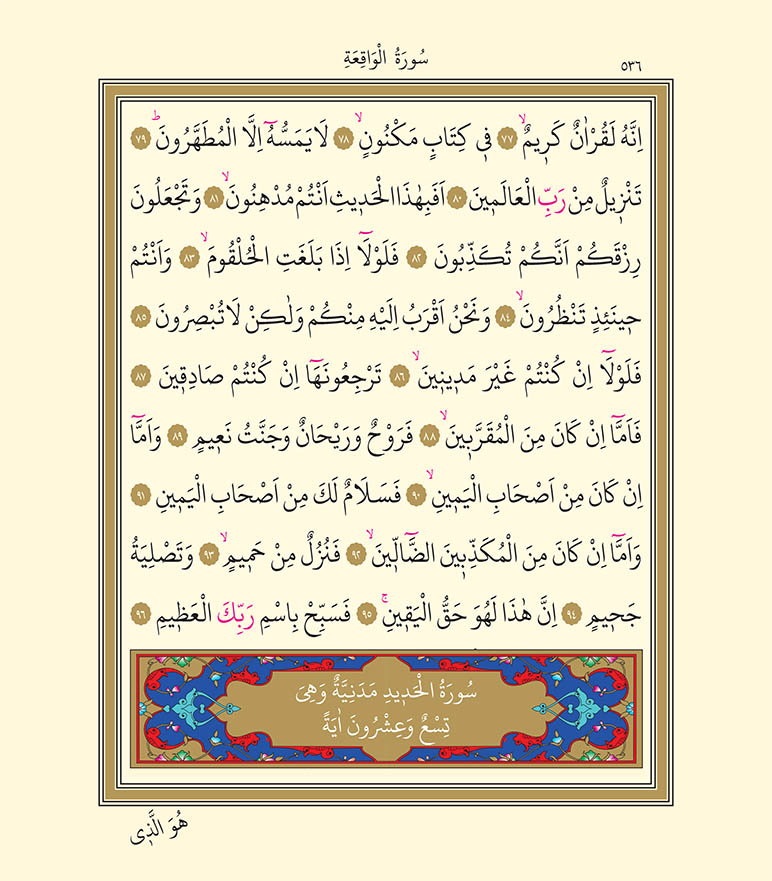 سُورَةُ الْوَاقِعَةِ
٥٣٦
اِنَّهُ لَقُرْاٰنٌ كَر۪يمٌۙ ﴿٧٧﴾ ف۪ي كِتَابٍ مَكْنُونٍۙ ﴿٧٨﴾ لَا يَمَسُّهُٓ اِلَّا الْمُطَهَّرُونَۜ ﴿٧٩﴾
تَنْز۪يلٌ مِنْ رَبِّ الْعَالَم۪ينَ ﴿٨٠﴾ اَفَبِهٰذَا الْحَد۪يثِ اَنْتُمْ مُدْهِنُونَۙ ﴿٨١﴾ وَتَجْعَلُونَ
رِزْقَكُمْ اَنَّكُمْ تُكَذِّبُونَ ﴿٨٢﴾ فَلَوْلَٓا اِذَا بَلَغَتِ الْحُلْقُومَۙ ﴿٨٣﴾ وَاَنْتُمْ
ح۪ينَئِذٍ تَنْظُرُونَۙ ﴿٨٤﴾ وَنَحْنُ اَقْرَبُ اِلَيْهِ مِنْكُمْ وَلٰكِنْ لَا تُبْصِرُونَ ﴿٨٥﴾
فَلَوْلَٓا اِنْ كُنْتُمْ غَيْرَ مَد۪ين۪ينَۙ ﴿٨٦﴾ تَرْجِعُونَهَٓا اِنْ كُنْتُمْ صَادِق۪ينَ ﴿٨٧﴾
فَاَمَّٓا اِنْ كَانَ مِنَ الْمُقَرَّب۪ينَۙ ﴿٨٨﴾ فَرَوْحٌ وَرَيْحَانٌ وَجَنَّتُ نَع۪يمٍ ﴿٨٩﴾ وَاَمَّٓا
اِنْ كَانَ مِنْ اَصْحَابِ الْيَم۪ينِۙ ﴿٩٠﴾ فَسَلَامٌ لَكَ مِنْ اَصْحَابِ الْيَم۪ينِ ﴿٩١﴾
وَاَمَّٓا اِنْ كَانَ مِنَ الْمُكَذِّب۪ينَ الضَّٓالّ۪ينَۙ ﴿٩٢﴾ فَنُزُلٌ مِنْ حَم۪يمٍۙ ﴿٩٣﴾ وَتَصْلِيَةُ
جَح۪يمٍ ﴿٩٤﴾ اِنَّ هٰذَا لَهُوَ حَقُّ الْيَق۪ينِۚ ﴿٩٥﴾ فَسَبِّحْ بِاسْمِ رَبِّكَ الْعَظ۪يمِ ﴿٩٦﴾
سُورَةُ الْحَد۪يدِ مَدَنِيَّةٌ وَهِيَ
تِسْعٌ وَعِشْرُونَ اٰيَةً
هُوَ الَّذ۪ي